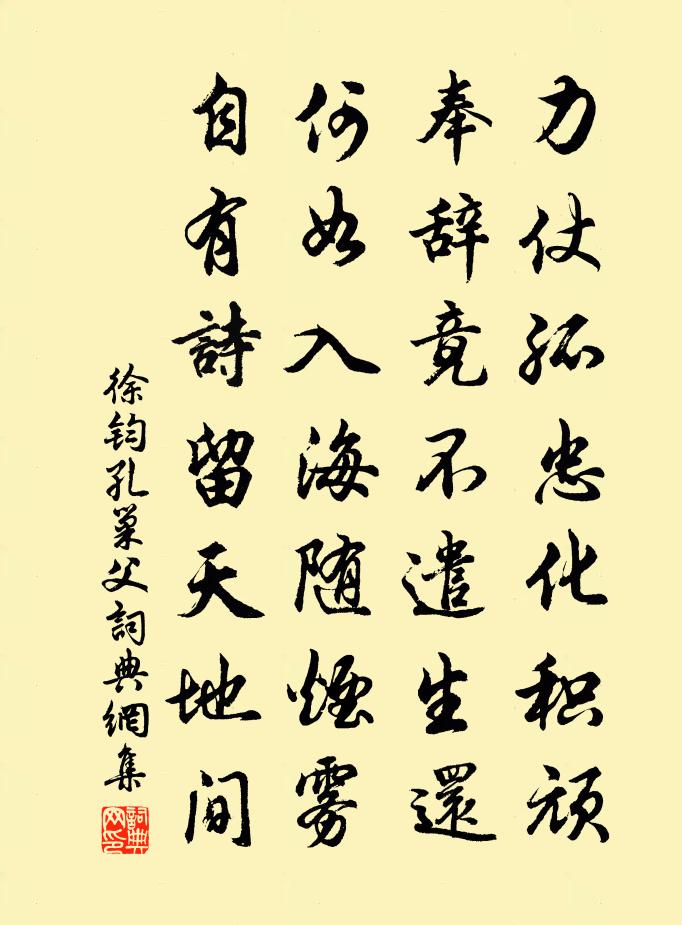 力仗孤忠化积顽
奉辞竟不遣生還
何如入海随煙雾
自有詩留天地间
徐钧孔巢父詞典網集
詞典网印